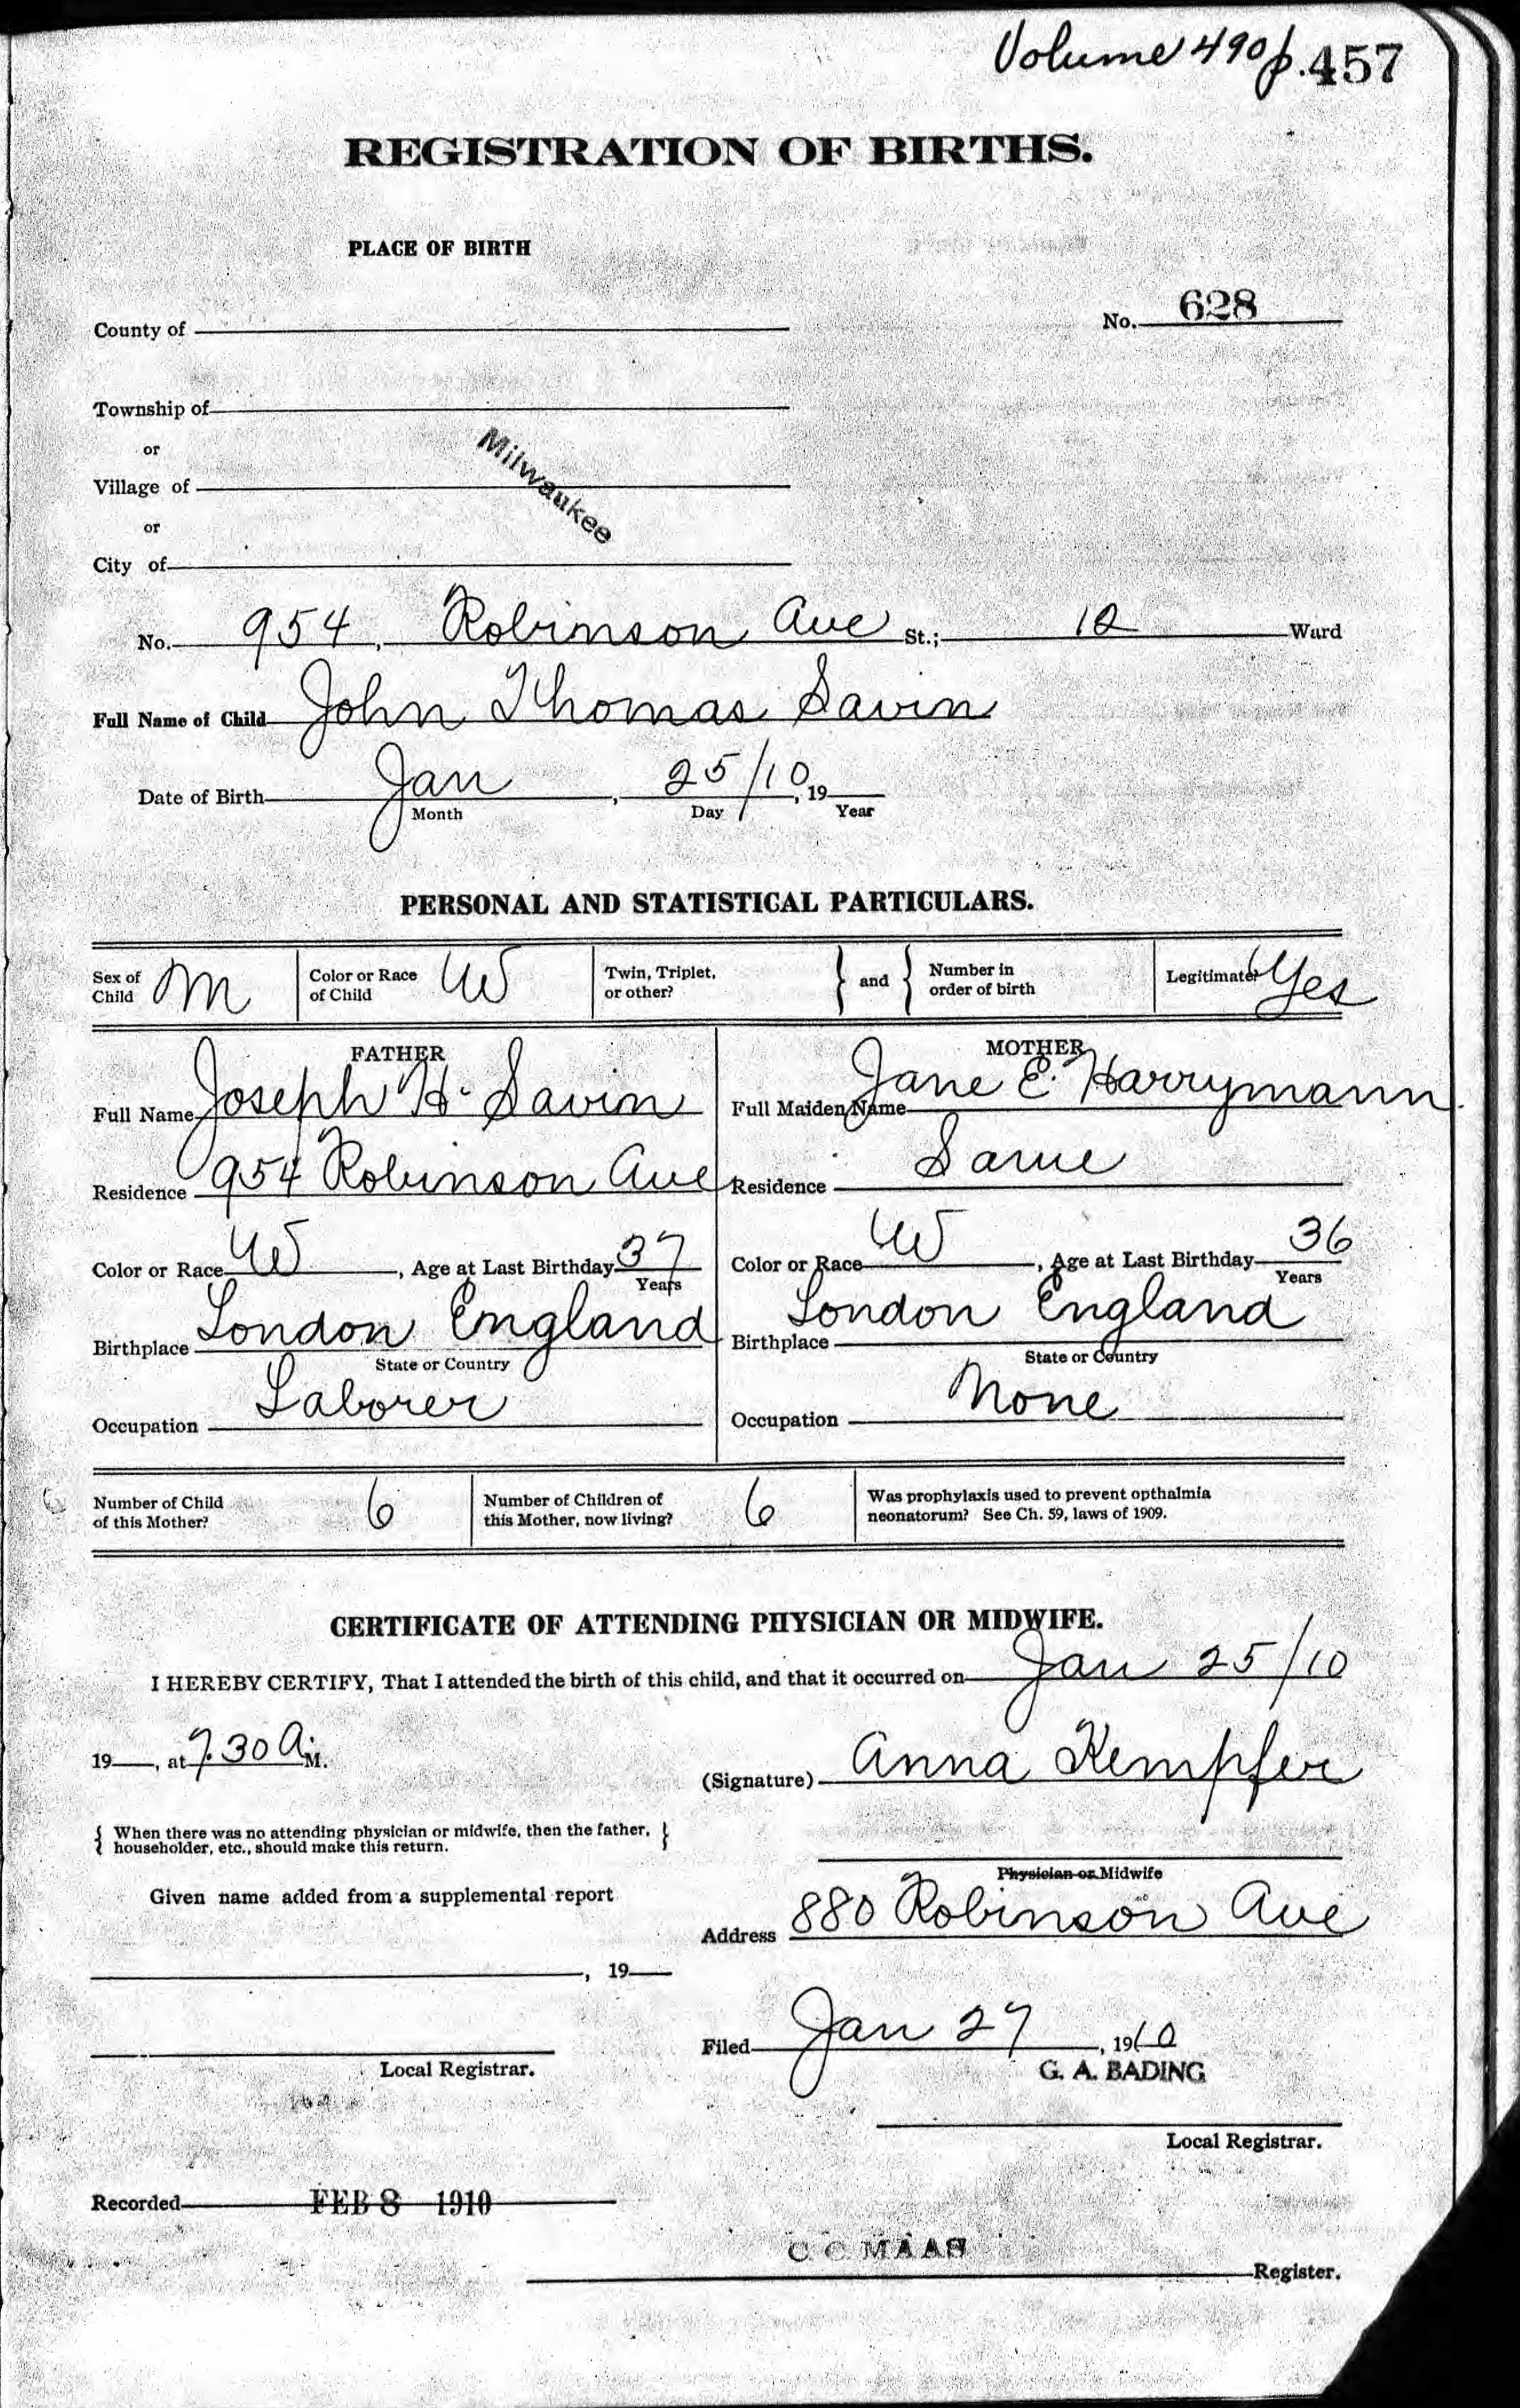 Volume 490 p. 457
REGISTRATION OF BIRTHS.
PLACE OF BIRTH
County of
No. 628
Township of
or
Milwaukee
Village of
or
City of
No. 954, Robinson Ave St.; 12 Ward
Full Name of Child John Thomas Savin
Date of Birth Jan , 25/10, 19
Month Day Year
PERSONAL AND STATISTICAL PARTICULARS.
Sex of Child M Color or Race of Child W Twin, Triplet, or other? } and { Number in order of birth Legitimate? Yes
FATHER
Full Name Joseph H. Savin
Residence 954 Robinson Ave
Color or Race W, Age at Last Birthday 37
Years
Birthplace London England
State or Country
Occupation Laborer
MOTHER
Full Maiden Name Jane E. Harrymann
Residence Same
Color or Race W, Age at Last Birthday 36
Years
Birthplace London England
State or Country
Occupation None
Number of Child of this Mother? 6 Number of Children of this Mother, now living? 6 Was prophylaxis used to prevent opthalmia neonatorum? See Ch. 59, laws of 1909.
CERTIFICATE OF ATTENDING PHYSICIAN OR MIDWIFE.
I HEREBY CERTIFY, That I attended the birth of this child, and that it occurred on Jan 25/10
19 , at 7.30 A. M.
(Signature) Anna Kempfer
{ When there was no attending physician or midwife, then the father, householder, etc., should make this return. }
Physician or Midwife
Given name added from a supplemental report
Address 880 Robinson Ave
, 19
Filed Jan 27, 1910
Local Registrar.
G. A. BADING
Local Registrar.
Recorded FEB 8 1910
C C MAAS
Register.